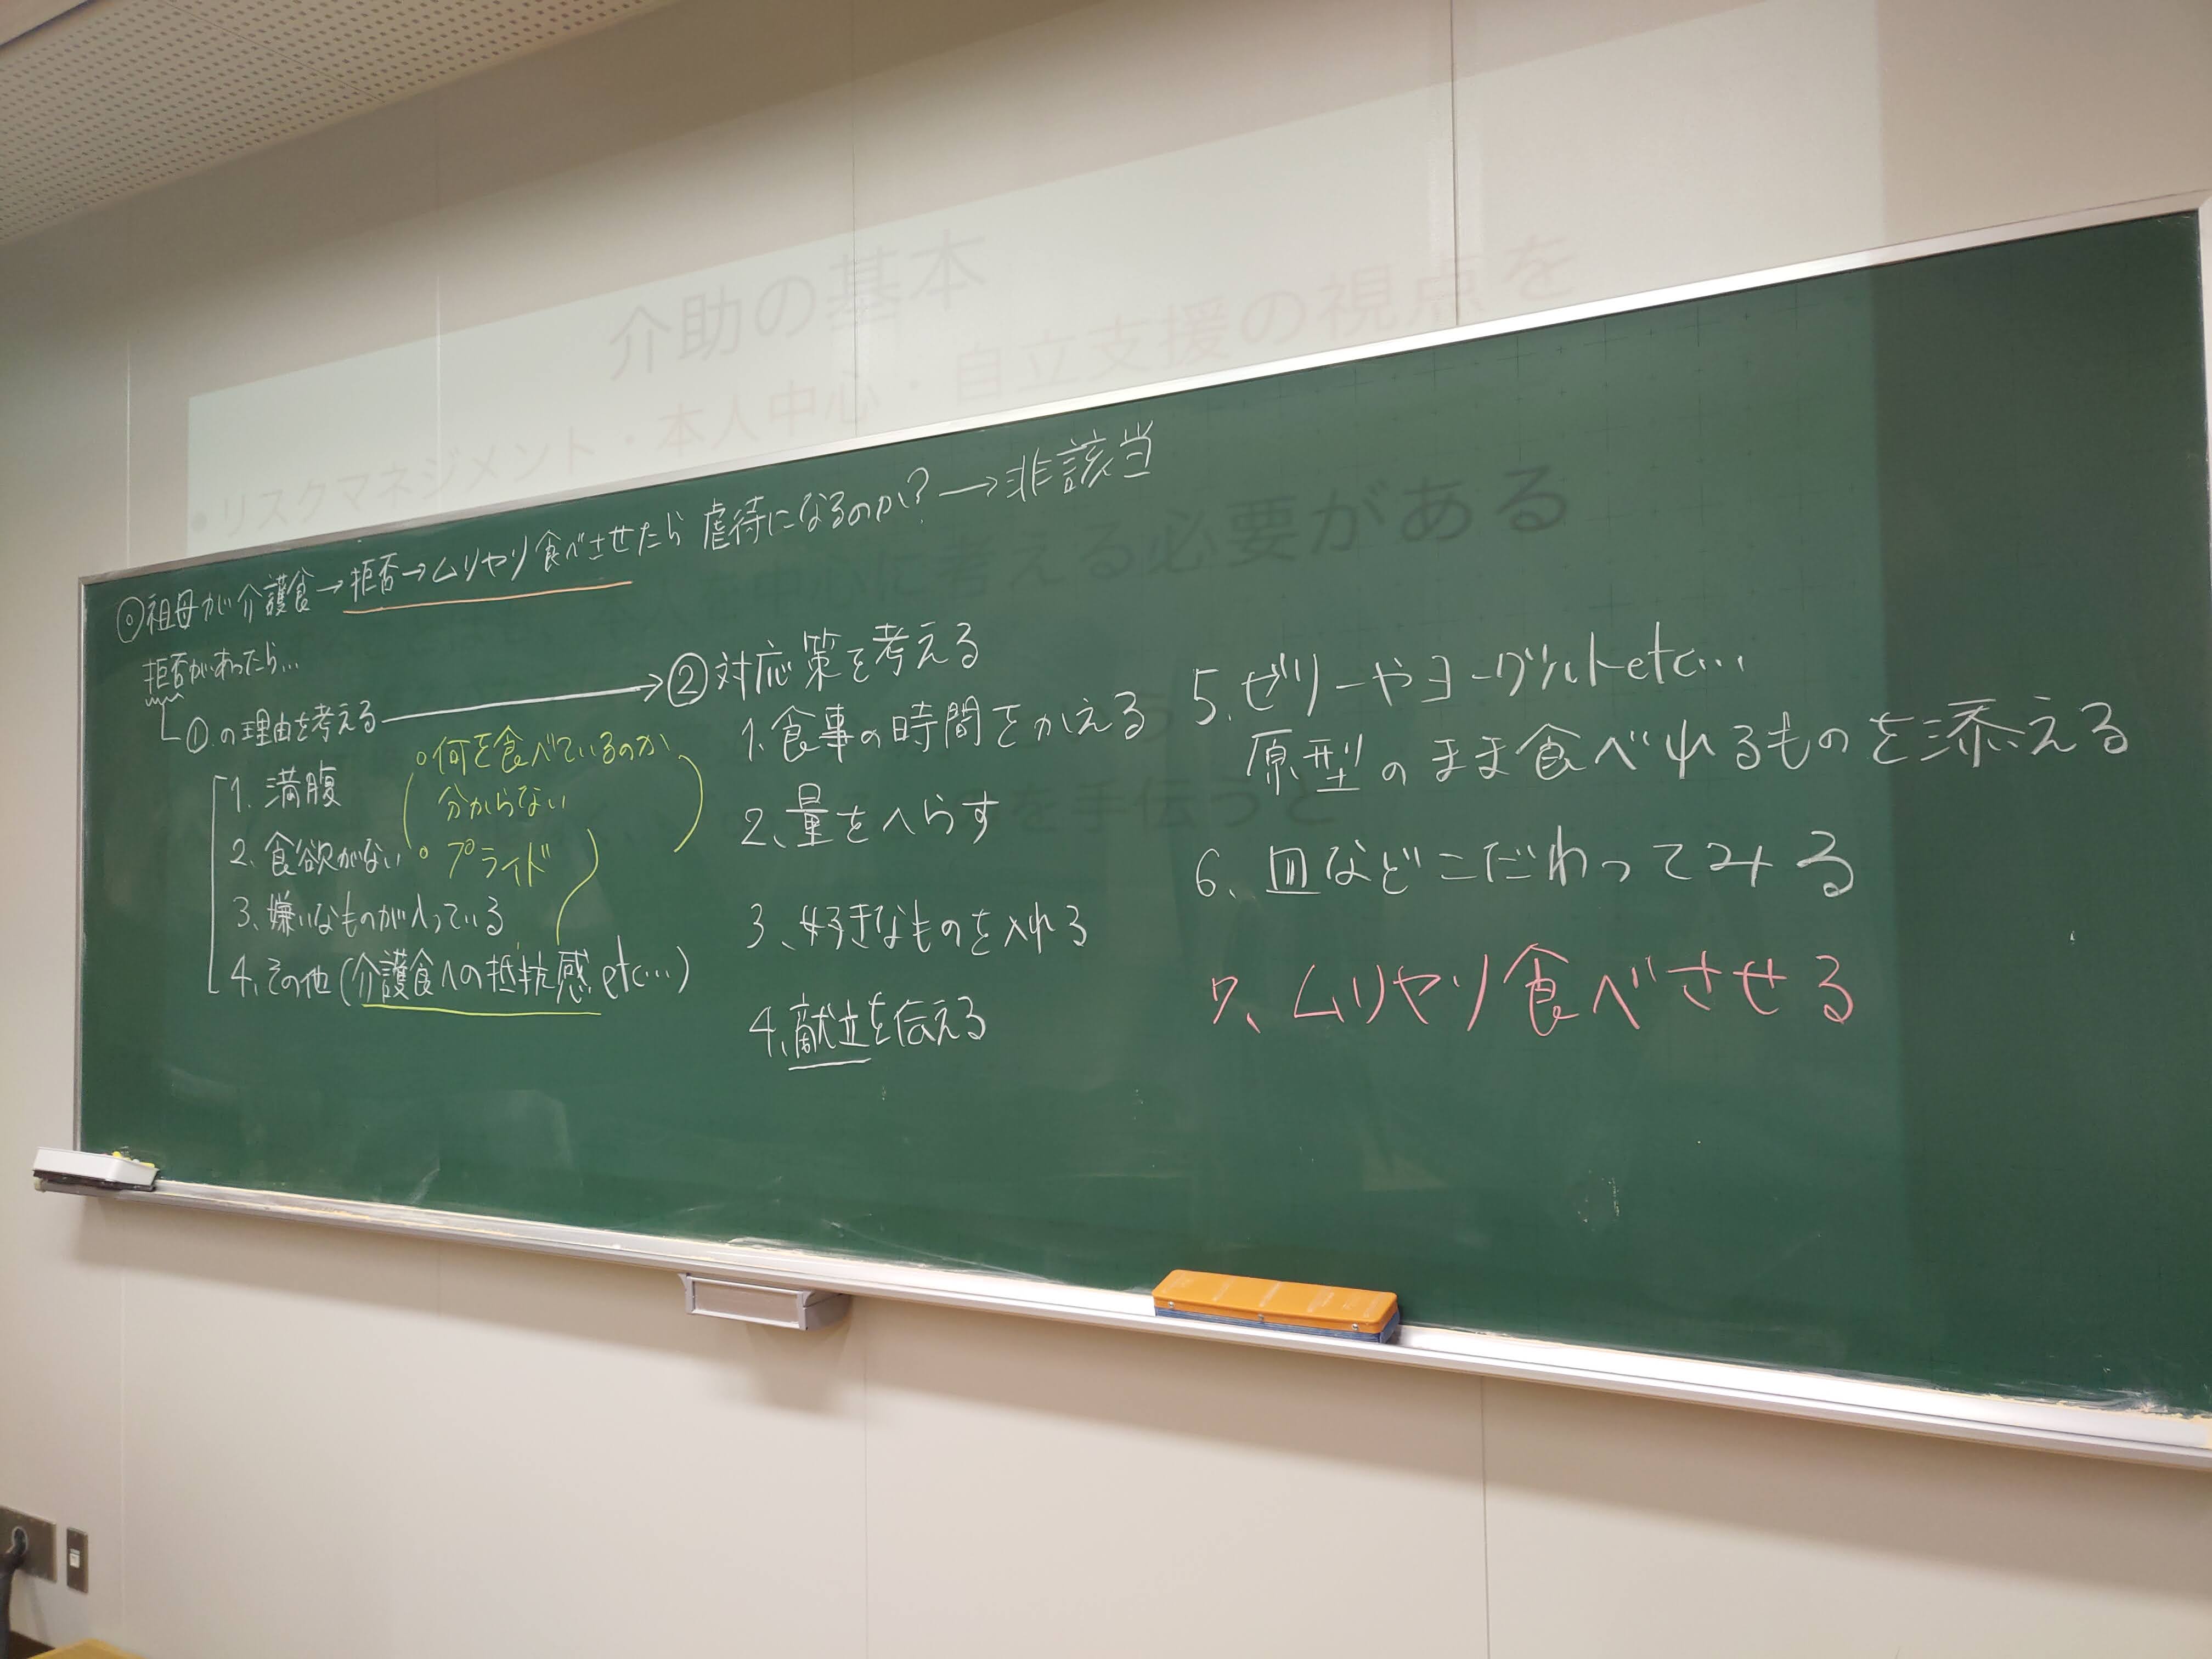 介助の基本
•リスクマネジメント・本人中心・自立支援の視点を
中心に考える必要がある
を手伝うと
◎祖母が介護食→拒否→ムリヤリ食べさせたら虐待になるのか?→非該当
拒否があったら…
①.の理由を考える
1. 満腹
2. 食欲がない
3、嫌いなものが入っている
4、その他(介護食への抵抗感 etc…)
○何を食べているのか
分からない
○プライド
②対応策を考える
1、食事の時間をかえる
2、量をへらす
3、好きなものを入れる
4、献立を伝える
5.ゼリーやヨーグルトetc…
原型のまま食べれるものを添える
6、皿などこだわってみる
7、ムリヤリ食べさせる